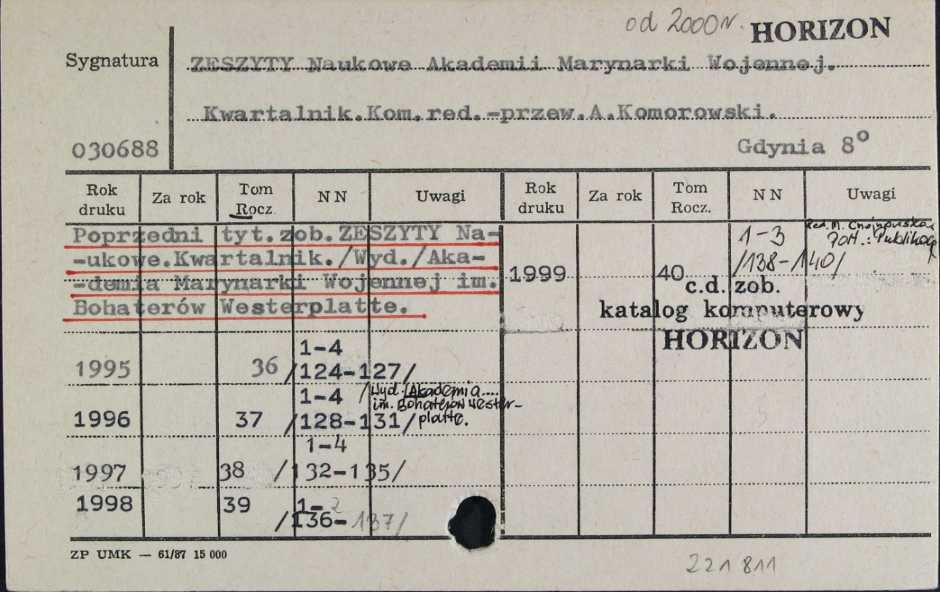 od 2000 r. HORIZON
Sygnatura
ZESZYTY Naukowe Akademii Marynarki Wojennej.
Kwartalnik.Kom.red.-przew.A.Komorowski.
030688
Gdynia 8°
Rok druku Za rok Tom Rocz. N N Uwagi Rok druku Za rok Tom Rocz. N N Uwagi
Poprzedni tyt.zob.ZESZYTY Na-
-ukowe.Kwartalnik./Wyd./Aka-
-demia Marynarki Wojennej im.
Bohaterów Westerplatte.
1995 36 1-4 /124-127/
1996 37 1-4 /128-131/ /Wyd./Akademia....
im. Bohaterów Wester-
platte.
1997 38 1-4 /132-135/
1998 39 1-2 /136-137/
1999 40 1-3 /138-140/ Red. M.
c.d. zob.
katalog komputerowy
HORIZON
ZP UMK — 61/87 15 000
221 811